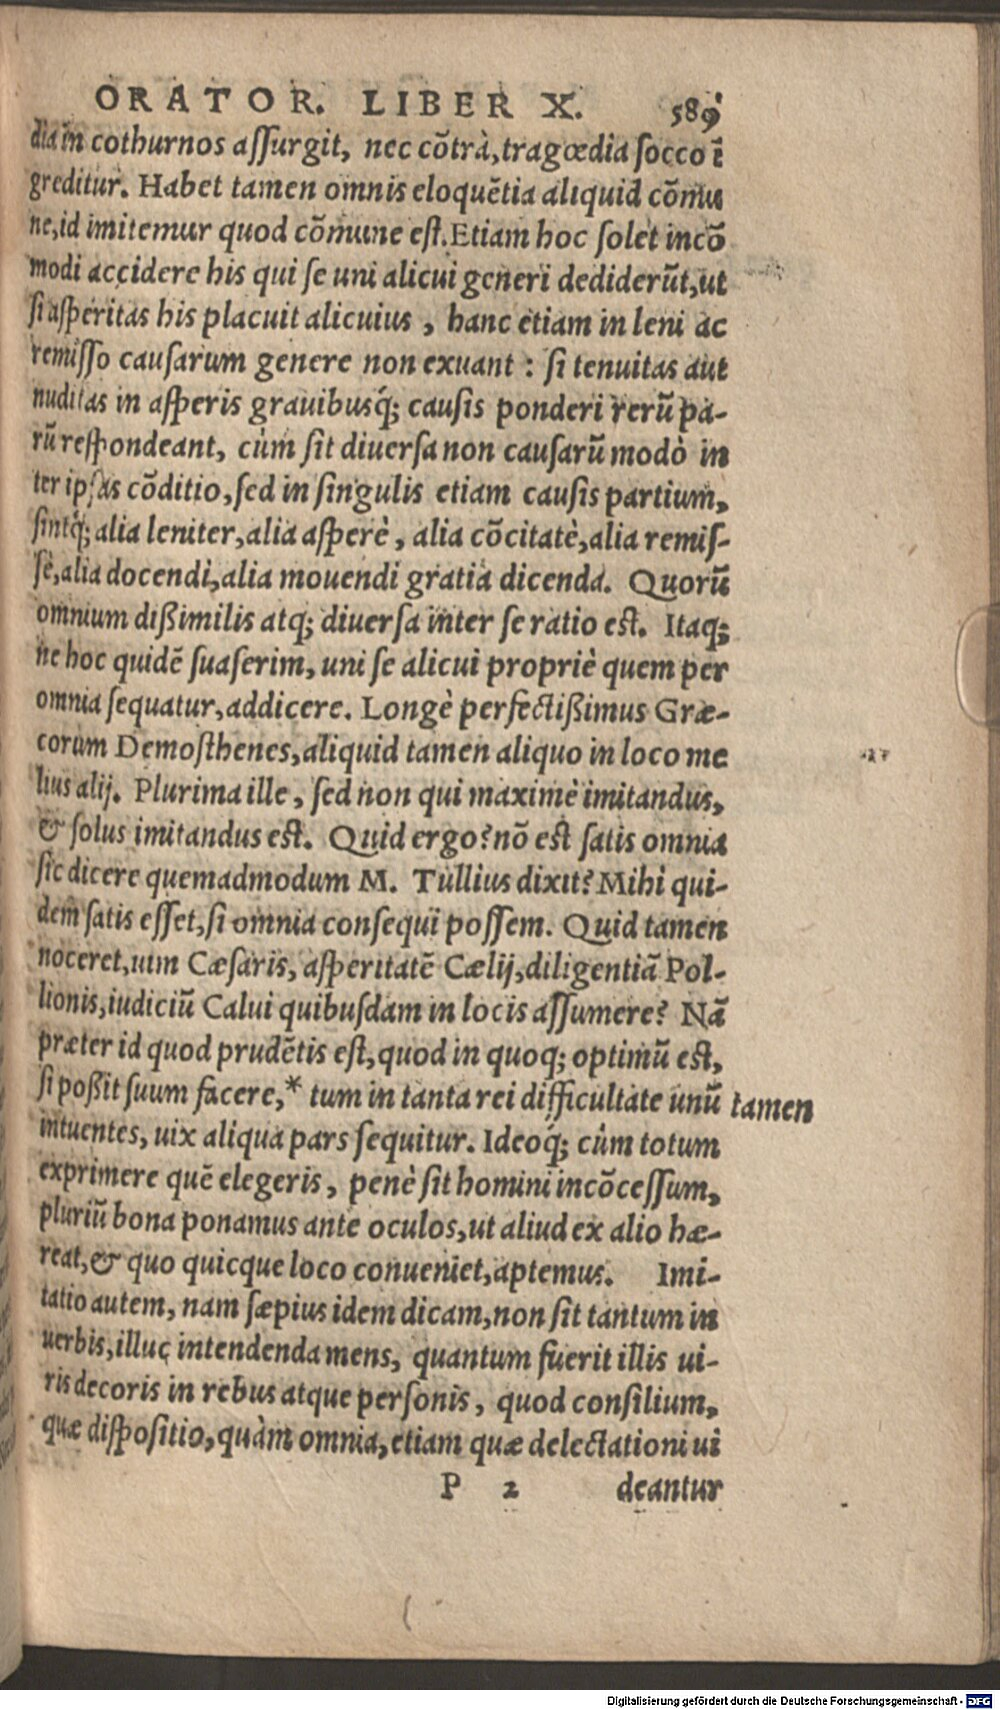 ORATOR. LIBER X. 589
dia in cothurnos aſſurgit, nec cõtrà, tragœdia ſocco ĩ
greditur. Habet tamen omnis eloquẽtia aliquid cõmu
ne, id imitemur quod cõmune eſt. Etiam hoc ſolet incõ
modi accidere his qui ſe uni alicui generi dediderũt, ut
ſi aſperitas his placuit alicuius, hanc etiam in leni ac
remiſſo cauſarum genere non exuant : ſi tenuitas aut
nuditas in aſperis grauibusq́; cauſis ponderi rerũ pa-
rũ reſpondeant, cùm ſit diuerſa non cauſarũ modò in
ter ipſas cõditio, ſed in ſingulis etiam cauſis partium,
ſintq́; alia leniter, alia aſperè, alia cõcitatè, alia remiſ-
ſè, alia docendi, alia mouendi gratia dicenda. Quorũ
omnium dißimilis atq; diuerſa inter ſe ratio eſt. Itaq;
ne hoc quidẽ ſuaſerim, uni ſe alicui propriè quem per
omnia ſequatur, addicere. Longè perfectißimus Græ-
corum Demoſthenes, aliquid tamen aliquo in loco me
lius alij. Plurima ille, ſed non qui maximè imitandus,
& ſolus imitandus eſt. Quid ergo? nõ eſt ſatis omnia
ſic dicere quemadmodum M. Tullius dixit? Mihi qui-
dem ſatis eſſet, ſi omnia conſequi poſſem. Quid tamen
noceret, uim Cæſaris, aſperitatẽ Cælij, diligentiã Pol-
lionis, iudiciũ Calui quibuſdam in locis aſſumere? Nã
præter id quod prudẽtis eſt, quod in quoq; optimũ eſt,
ſi poßit ſuum facere,* tum in tanta rei difficultate unũ tamen
intuentes, uix aliqua pars ſequitur. Ideoq́; cùm totum
exprimere quẽ elegeris, penè ſit homini incõceſſum,
pluriũ bona ponamus ante oculos, ut aliud ex alio hæ-
reat, & quo quicque loco conueniet, aptemus. Imi-
tatio autem, nam ſæpius idem dicam, non ſit tantum in
uerbis, illuc intendenda mens, quantum fuerit illis ui-
ris decoris in rebus atque perſonis, quod conſilium,
quæ diſpoſitio, quàm omnia, etiam quæ delectationi ui
P 2 deantur
Digitalisierung gefördert durch die Deutsche Forschungsgemeinschaft - DFG